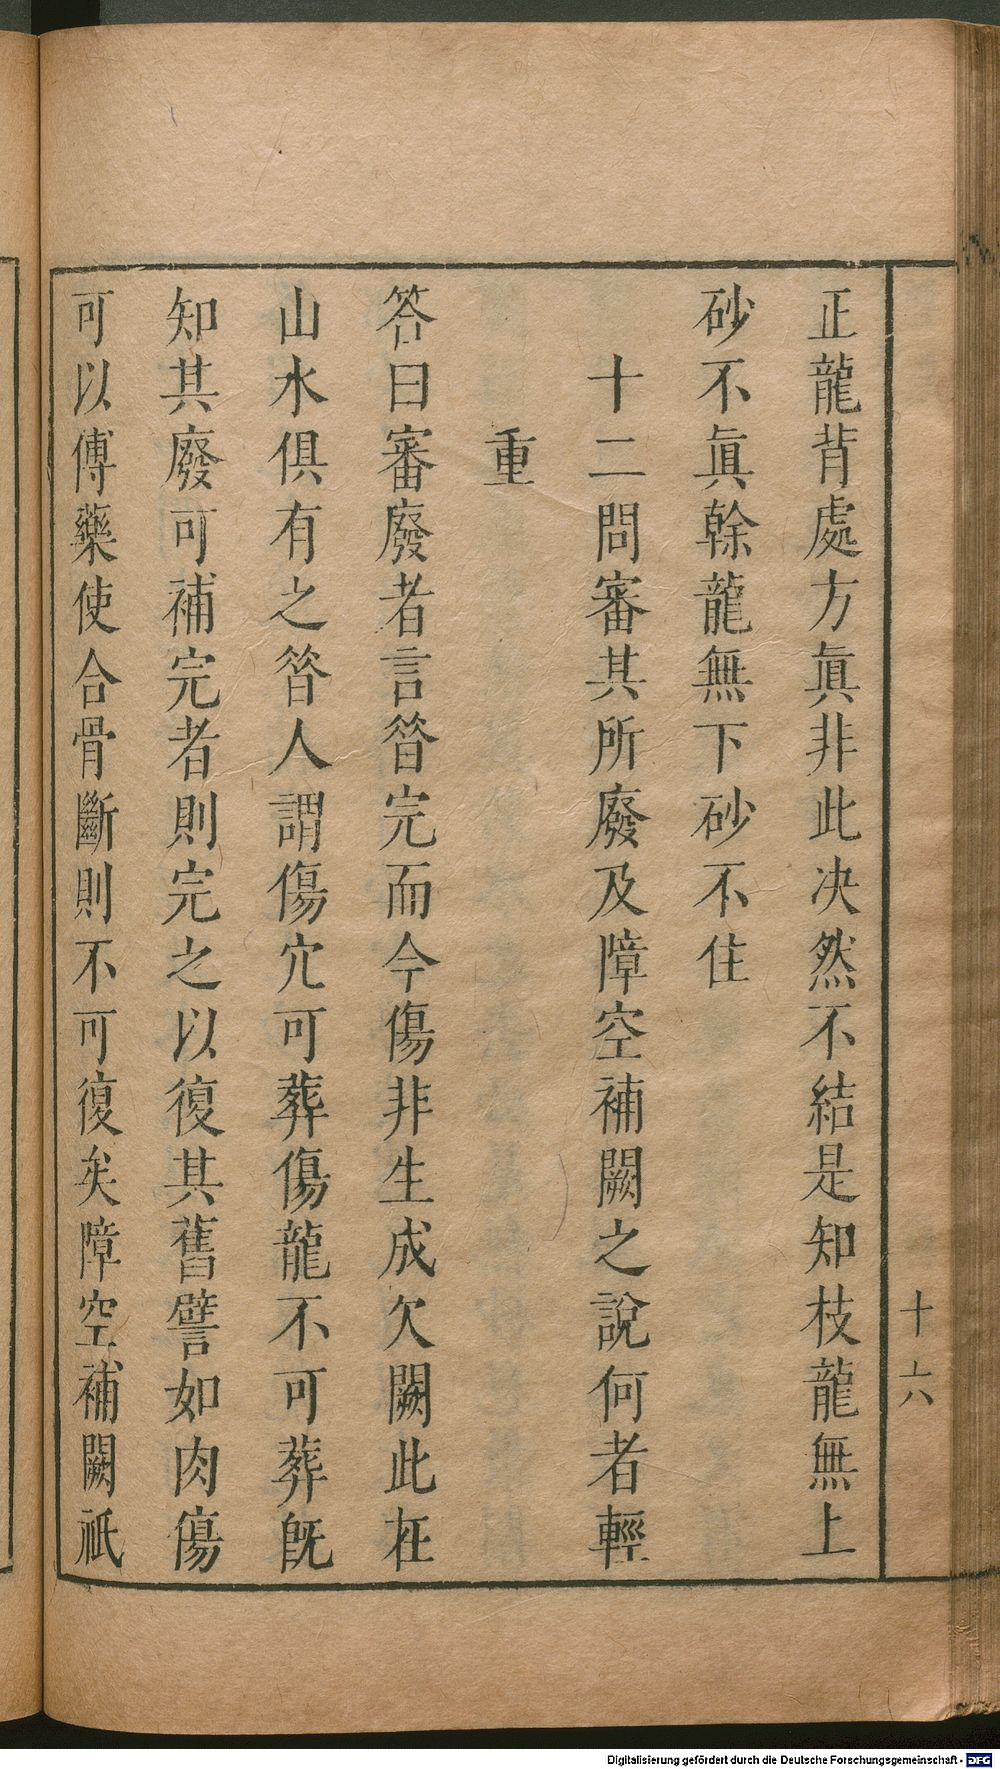 正龍背處方眞非此决然不結是知枝龍無上
砂不眞榦龍無下砂不住
十二問審其所廢及障空補闕之說何者輕
重
答曰審廢者言昝完而今傷非生成欠闕此在
山水俱有之昝人謂傷穴可葬傷龍不可葬旣
知其廢可補完者則完之以復其舊譬如肉傷
可以傅藥使合骨斷則不可復矣障空補闕祇
十六
Digitalisierung gefördert durch die Deutsche Forschungsgemeinschaft - DFG